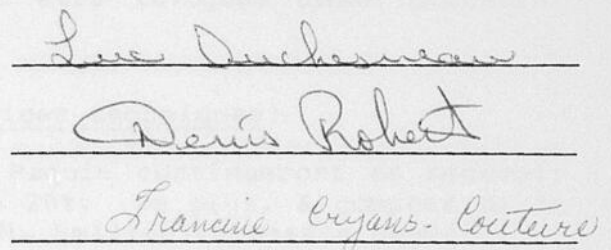 Luc Duchesneau
Denis Robert
Francine Cryans-Couture